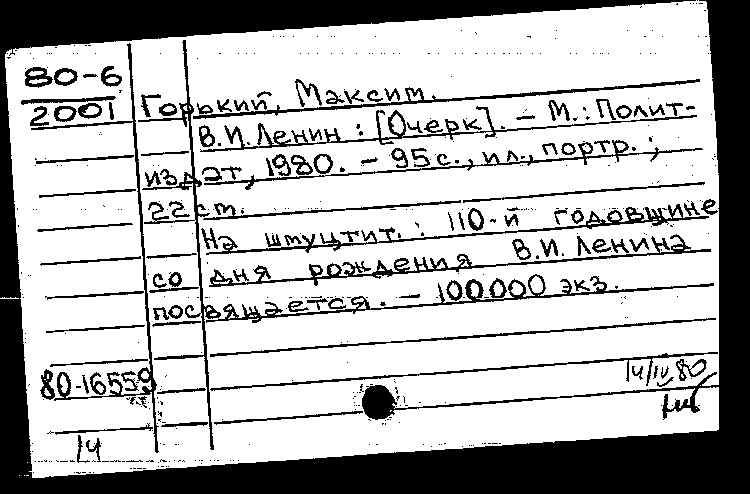 80-6
2001
Горький, Максим.
В.И. Ленин : [Очерк]. – М.: Полит-
издат, 1980. – 95 с., ил., портр. ;
22 cm.
На шмуцтит.: 110-й годовщине
со дня рождения В.И. Ленина
посвящается. – 100000 экз.
80-16559
14/IV 80
14